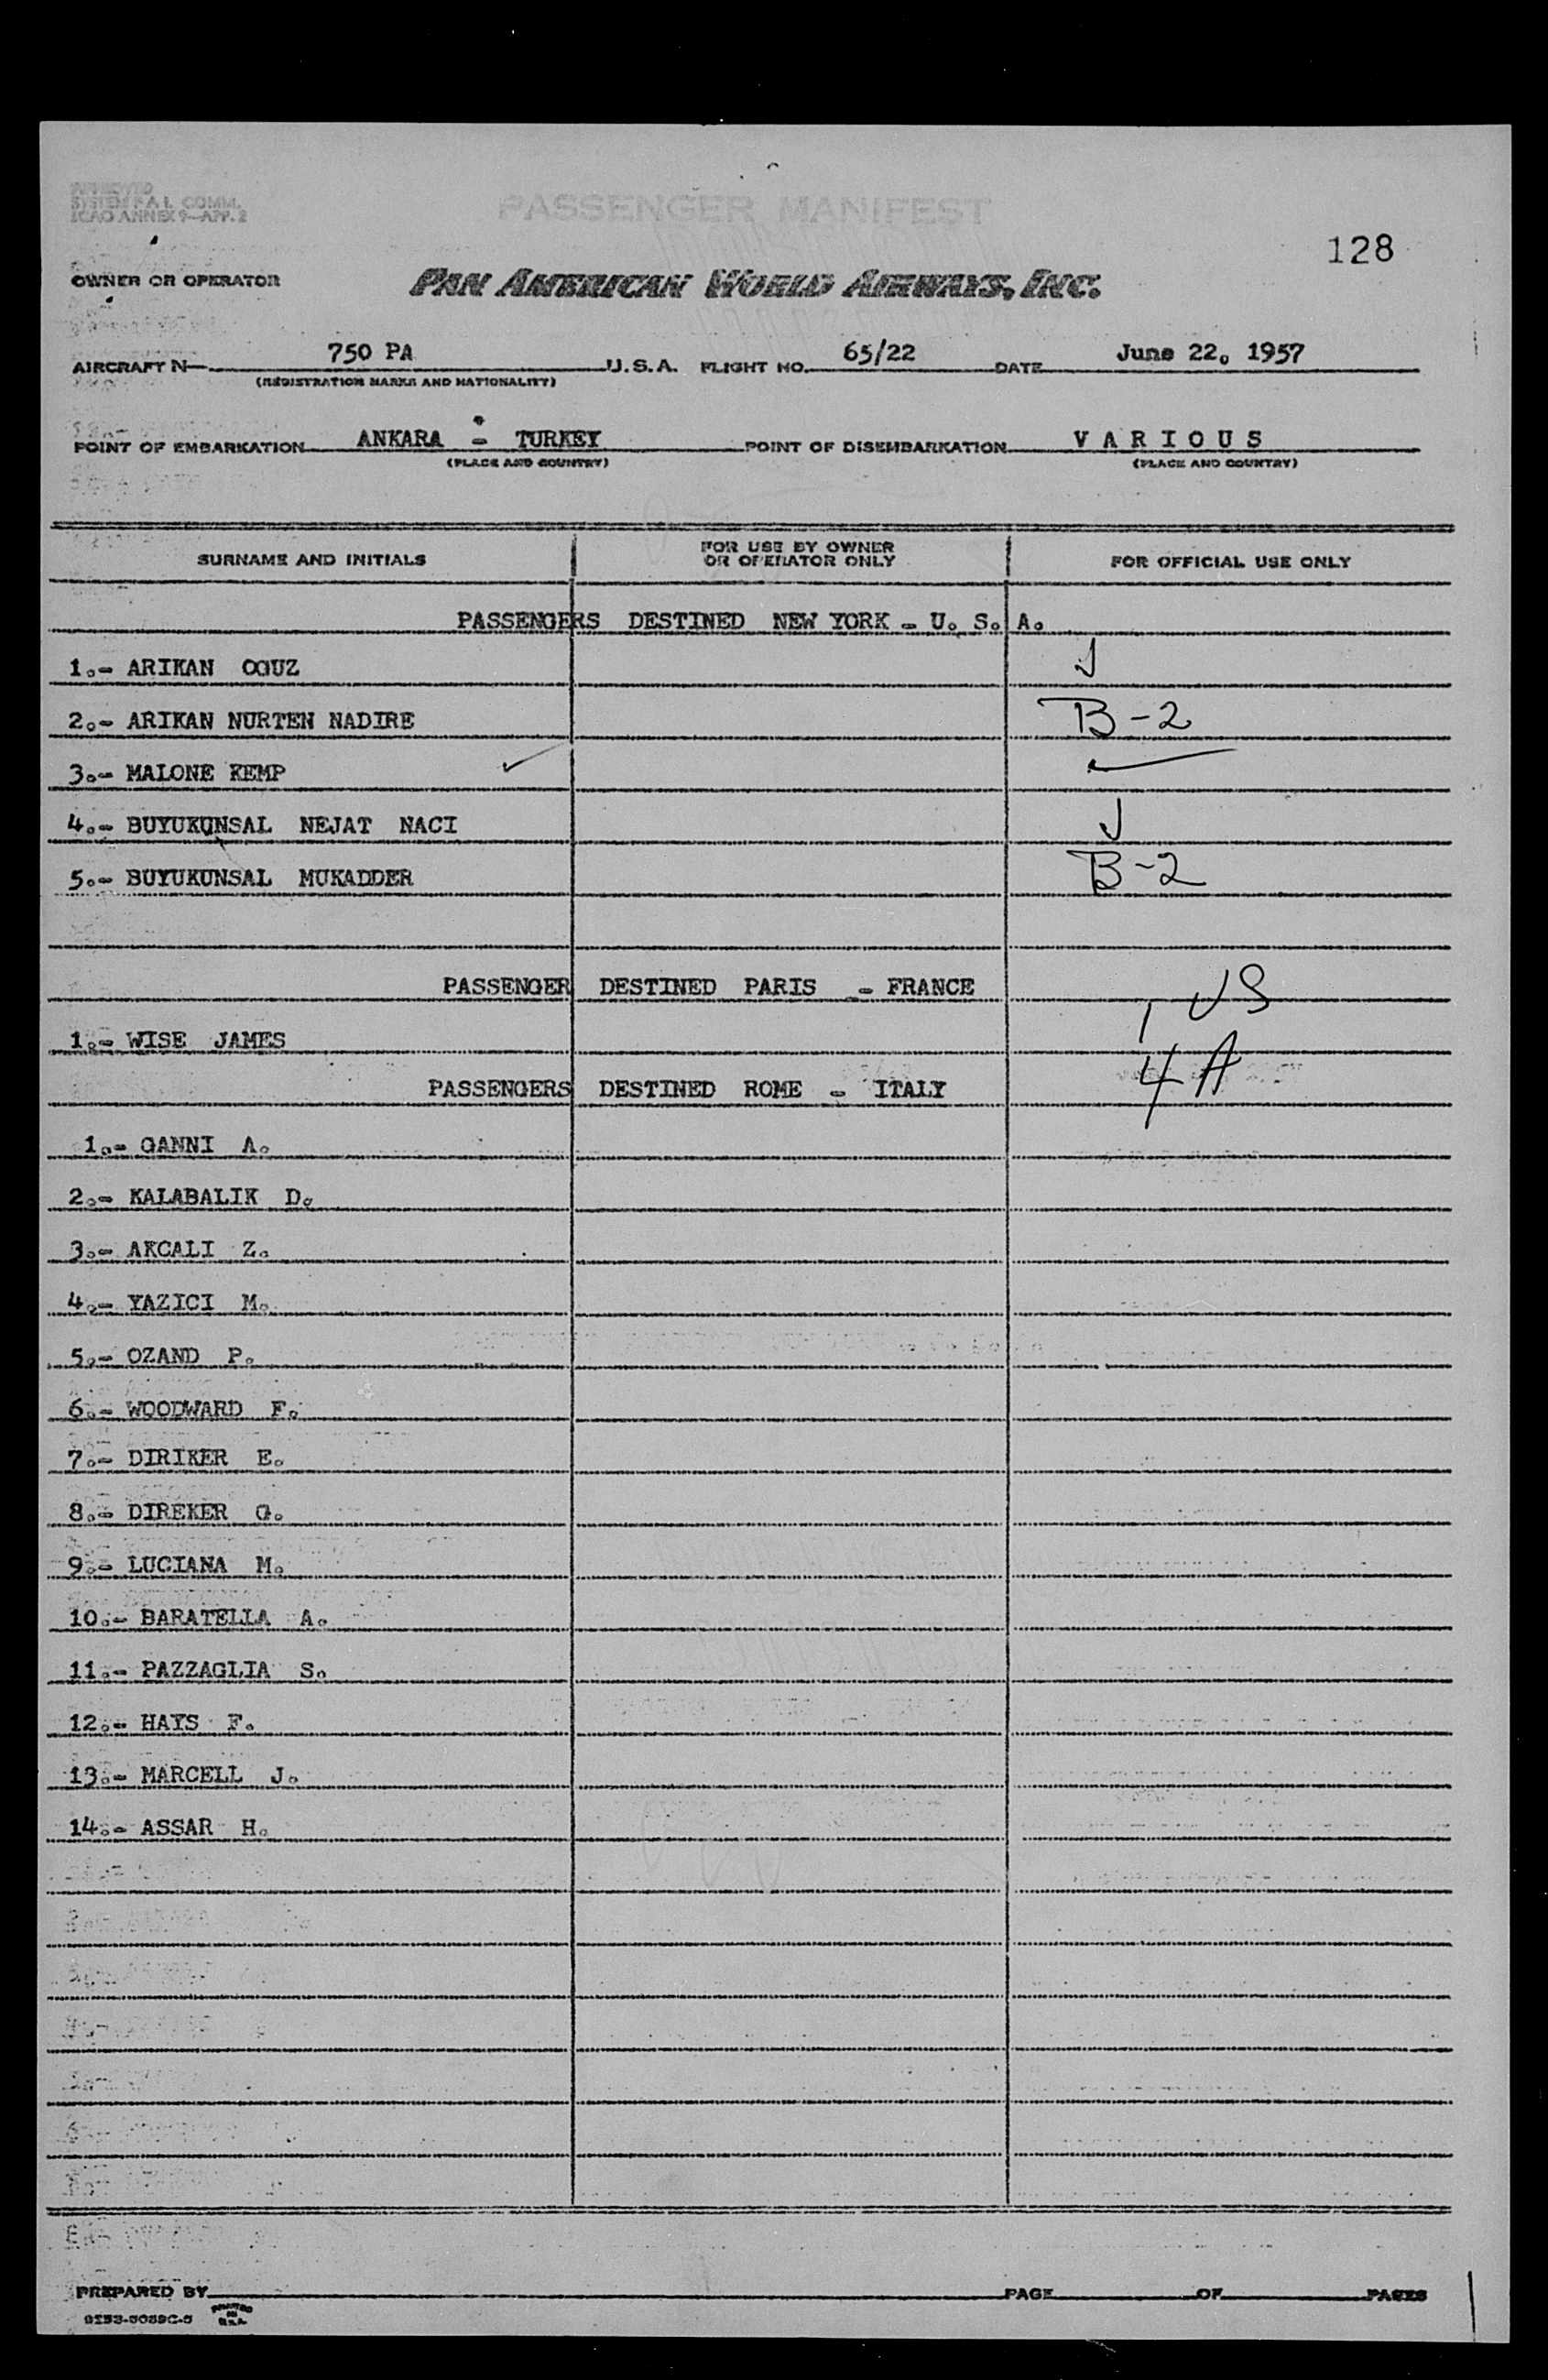 APPROVED
SYSTEM F A L COMM.
ICAO ANNEX 9—APP. 2
PASSENGER MANIFEST
128
OWNER OR OPERATOR PAN AMERICAN WORLD AIRWAYS, INC.
AIRCRAFT N— 750 PA U.S.A. FLIGHT NO. 65/22 DATE June 22, 1957
(REGISTRATION MARKS AND NATIONALITY)
POINT OF EMBARKATION ANKARA - TURKEY POINT OF DISEMBARKATION V A R I O U S
(PLACE AND COUNTRY) (PLACE AND COUNTRY)
SURNAME AND INITIALS FOR USE BY OWNER OR OPERATOR ONLY FOR OFFICIAL USE ONLY
PASSENGERS DESTINED NEW YORK - U. S. A.
1.- ARIKAN OGUZ
2.- ARIKAN NURTEN NADIRE B-2
3.- MALONE KEMP
4.- BUYUKUNSAL NEJAT NACI
5.- BUYUKUNSAL MUKADDER B-2
PASSENGER DESTINED PARIS - FRANCE
1 US
1.- WISE JAMES
4 A
PASSENGERS DESTINED ROME - ITALY
1.- GANNI A.
2.- KALABALIK D.
3.- AKCALI Z.
4.- YAZICI M.
5.- OZAND P.
6.- WOODWARD F.
7.- DIRIKER E.
8.- DIREKER G.
9.- LUCIANA M.
10.- BARATELLA A.
11.- PAZZAGLIA S.
12.- HAYS F.
13.- MARCELL J.
14.- ASSAR H.
PREPARED BY PAGE OF PAGES
PRINTED IN U.S.A.